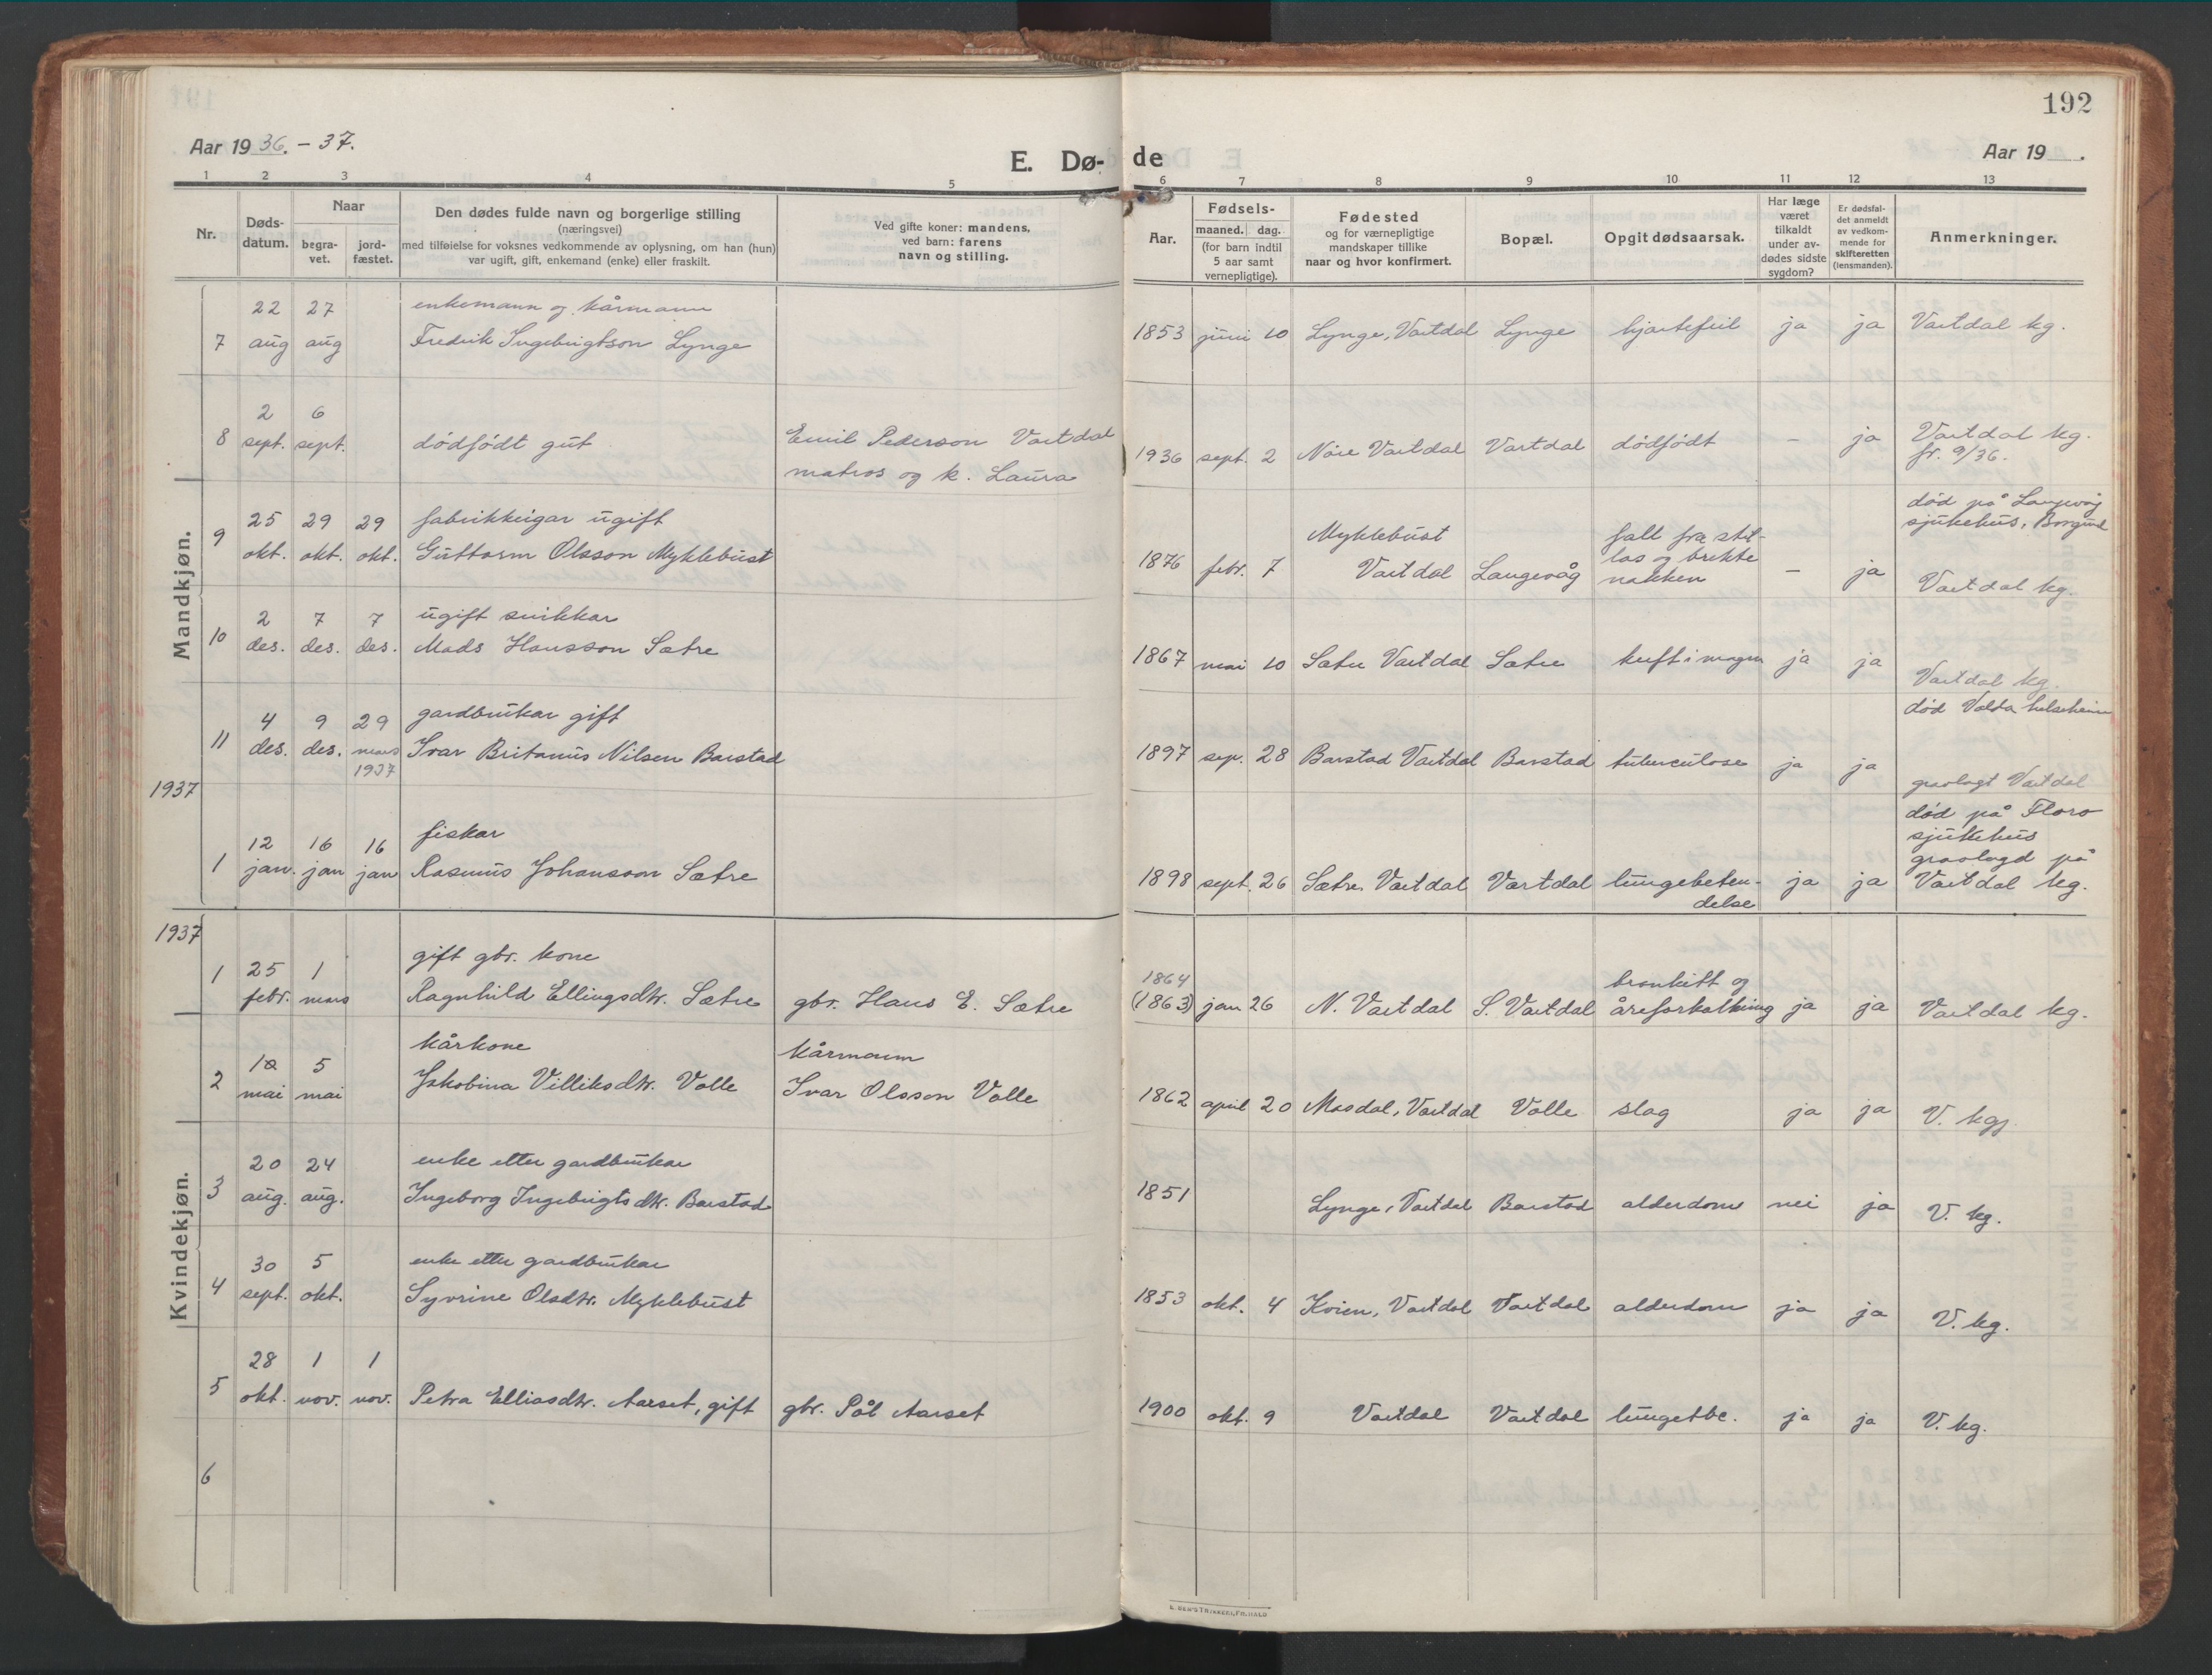 192
Aar 1936. – 37.
E. Dø- de
Aar 19 .
1 2 3 4 5 6 7 8 9 10 11 12 13
Nr.
Døds-
datum.
Naar
begra-
vet.
jord-
fæstet.
Den dødes fulde navn og borgerlige stilling
(næringsvei)
med tilføielse for voksnes vedkommende av oplysning, om han (hun)
var ugift, gift, enkemand (enke) eller fraskilt.
Ved gifte koner: mandens,
ved barn: farens
navn og stilling.
Aar.
Fødsels-
maaned. dag.
(for barn indtil
5 aar samt
vernepligtige).
Fødested
og for værnepligtige
mandskaper tillike
naar og hvor konfirmert.
Bopæl.
Opgit dødsaarsak.
Har læge
været
tilkaldt
under av-
dødes sidste
sygdom?
Er dødsfal-
det anmeldt
av vedkom-
mende for
skifteretten
(lensmanden).
Anmerkninger.
Mandkjøn.
22 27 enkemann og kårmann
7 aug aug Fredrik Ingebrigtson Lynge 1853 juni 10 Lynge, Vartdal Lynge hjartefeil ja ja Vartdal kg.
2 6
8 sept. sept. dødfødt gut Emil Pederson Vartdal
matros og k. Laura
1936 sept. 2 Nöre Vartdal Vartdal dødfødt – ja Vartdal kg.
fr. 9/36.
9 25 29 29 fabrikkeigar ugift
okt. okt. okt. Guttorm Olsson Myklebust
1876 febr. 7 Myklebust
Vartdal Langevåg
falt fra stil-
las og brekte
nakken – ja
død på Langevåg
sjukehus, Borgund
Vartdal kg.
10 2 7 7 ugift snikkar
des. des. des. Mads Hansson Sætre
1867 mai 10 Sætre Vartdal Sætre kreft i magen ja ja Vartdal kg.
11 4 9 29 gardbrukar gift
des. des. mars Ivar Britanus Nilsen Barstad
1937
1897 sep. 28 Barstad Vartdal Barstad tuberculose ja ja
død Volda helseheim
gravlagt Vartdal
1937
1 12 16 16 fiskar
jan. jan jan Rasmus Johansson Sætre
1898 sept. 26 Sætre, Vartdal Vartdal lungebeten-
delse ja ja
død på Florø
sjukehus
gravlagd på
Vartdal kg.
1937
Kvindekjøn.
1 25 1 gift gbr. kone
febr. mars Ragnhild Ellingsdtr. Sætre gbr. Hans E. Sætre
1864
(1863) jan 26 N. Vartdal S. Vartdal
bronkitt og
åreforkalkning ja ja Vartdal kg.
2 1 5 kårkone kårmann
mai mai Jakobina Villiksdtr. Valle Ivar Olsson Valle
1862 april 20 Masdal, Vartdal Valle slag ja ja V. kg.
3 20 24 enke etter gardbrukar
aug. aug. Ingeborg Ingebrigtsdtr. Barstad
1851 Lynge, Vartdal Barstad alderdom nei ja V. kg.
4 30 5 enke etter gardbrukar
sept. okt. Syvrine Olsdtr. Myklebust
1853 okt. 4 Kvien, Vartdal Vartdal alderdom ja ja V. kg.
5 28 1 1
okt. nov. nov. Petra Elliasdtr. Aarset, gift gbr. Pål Aarset
1900 okt. 9 Vartdal Vartdal lungetbc. ja ja V. kg.
6